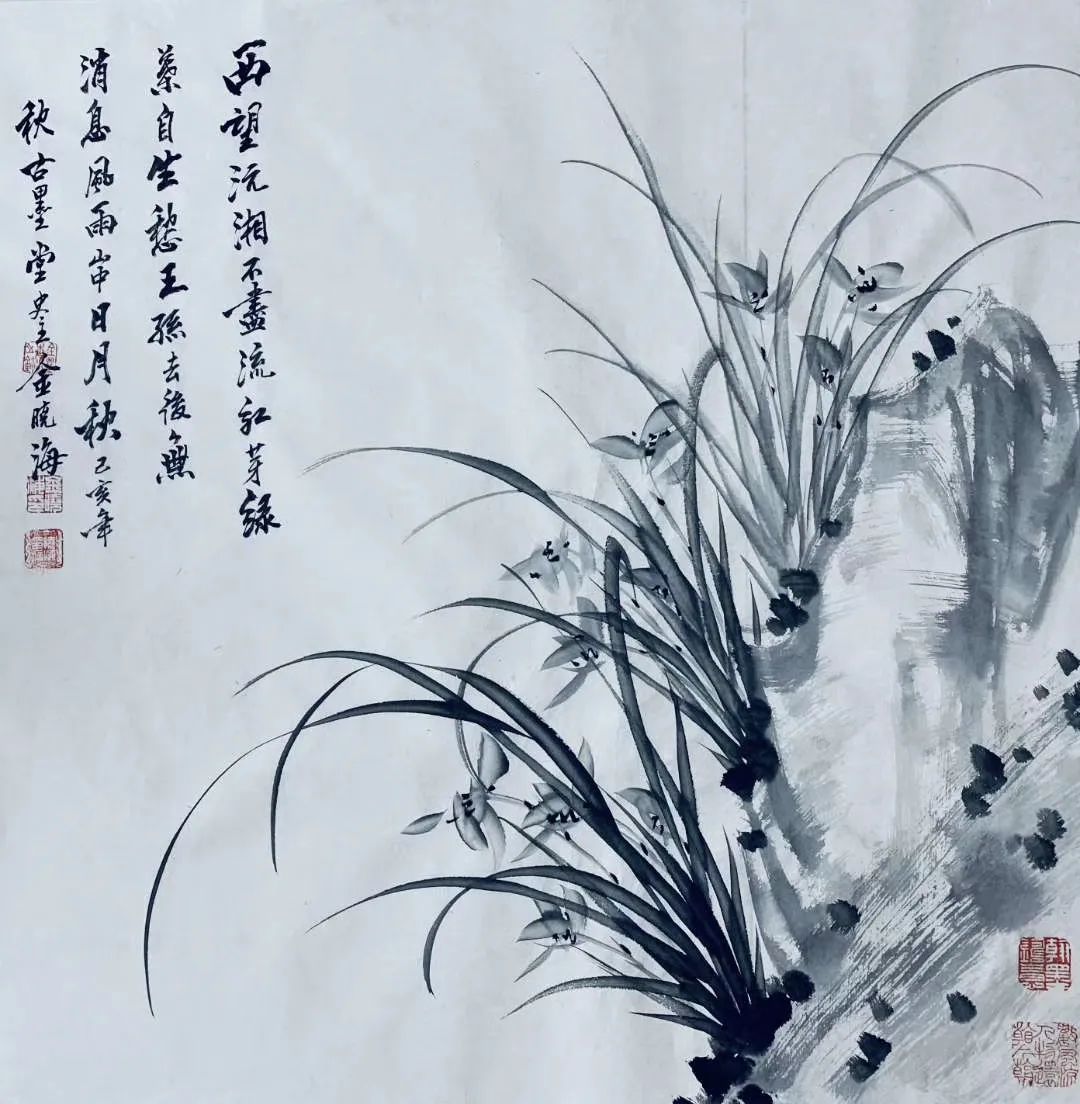 西望沅湘不盡流紅芽緑
蘂自生愁王孫去後無
消息風雨山中日月秋己亥年
秋古墨堂主金曉海